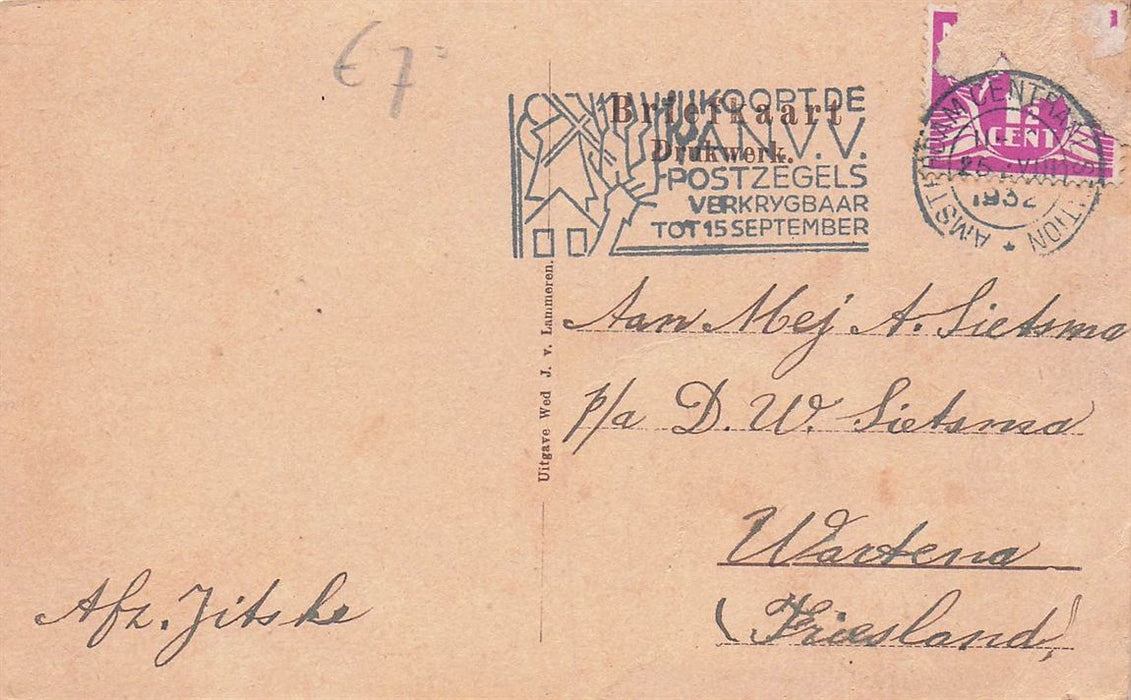 €7
KOOPT DE
A.N.V.V.
POSTZEGELS
VERKRYGBAAR
TOT 15 SEPTEMBER
Briefkaart
Drukwerk.
1½
CENT
AMSTERDAM CENTRAAL STATION
1932
Uitgave Wed J. v. Lammeren.
Aan Mej A. Sietsma
p/a D. W. Sietsma
Wartena
(Friesland)
Afz. Jitske